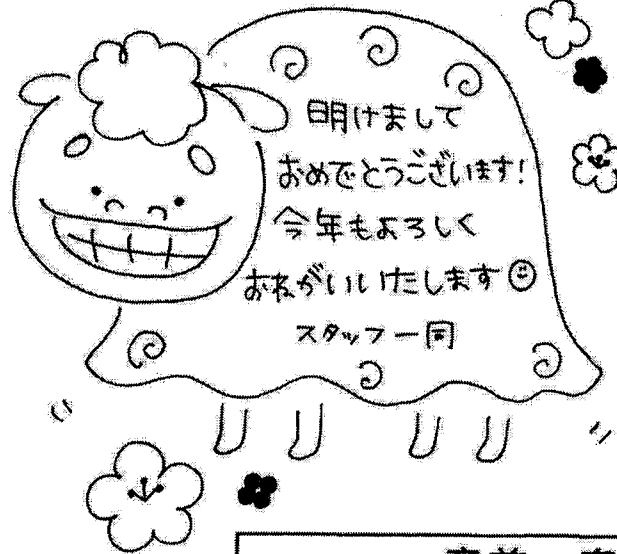 明けまして
おめでとうございます!
今年もよろしく
おねがいいたします
スタッフ一同